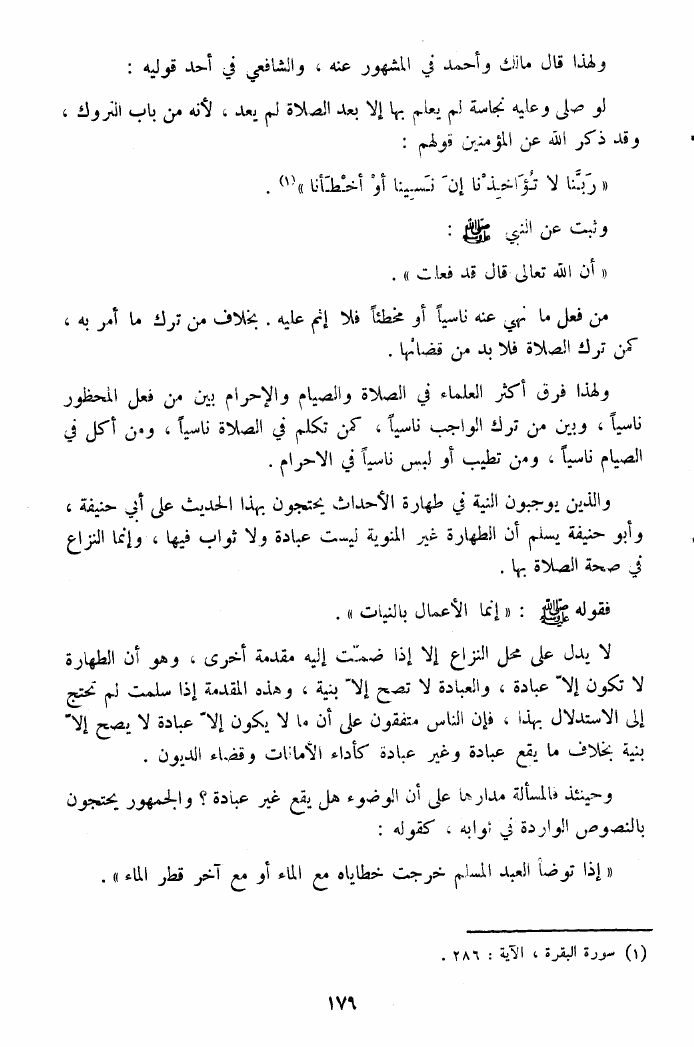 ولهذا قال مالك وأحمد في المشهور عنه ، والشافعي في أحد قوليه :
لو صلى وعليه نجاسة لم يعلم بها إلا بعد الصلاة لم يعد ، لأنه من باب التروك ،
وقد ذكر الله عن المؤمنين قولهم :
« رَبَّنا لا تُؤَاخِذْنا إنَ نَسِينا أوْ أخْطَأنا »(١) .
وثبت عن النبي ﷺ :
« أن الله تعالى قال قد فعلت » .
من فعل ما نهي عنه ناسياً أو مخطئاً فلا إثم عليه . بخلاف من ترك ما أمر به ،
كمن ترك الصلاة فلا بد من قضائها .
ولهذا فرق أكثر العلماء في الصلاة والصيام والإحرام بين من فعل المحظور
ناسياً ، وبين من ترك الواجب ناسياً ، كمن تكلم في الصلاة ناسياً ، ومن أكل في
الصيام ناسياً ، ومن تطيب أو لبس ناسياً في الاحرام .
والذين يوجبون النية في طهارة الأحداث يحتجون بهذا الحديث على أبي حنيفة ،
وأبو حنيفة يسلم أن الطهارة غير المنوية ليست عبادة ولا ثواب فيها ، وإنما النزاع
في صحة الصلاة بها .
فقوله ﷺ : « إنما الأعمال بالنيات » .
لا يدل على محل النزاع إلا إذا ضمّت إليه مقدمة أخرى ، وهو أن الطهارة
لا تكون إلاّ عبادة ، والعبادة لا تصح إلاّ بنية ، وهذه المقدمة إذا سلمت لم تحتج
إلى الاستدلال بهذا ، فإن الناس متفقون على أن ما لا يكون إلاّ عبادة لا يصح إلاّ
بنية بخلاف ما يقع عبادة وغير عبادة كأداء الأمانات وقضاء الديون .
وحينئذ فالمسألة مدارها على أن الوضوء هل يقع غير عبادة ؟ والجمهور يحتجون
بالنصوص الواردة في ثوابه ، كقوله :
« إذا توضأ العبد المسلم خرجت خطاياه مع الماء أو مع آخر قطر الماء » .
(١) سورة البقرة ، الآية : ٢٨٦ .
١٧٩